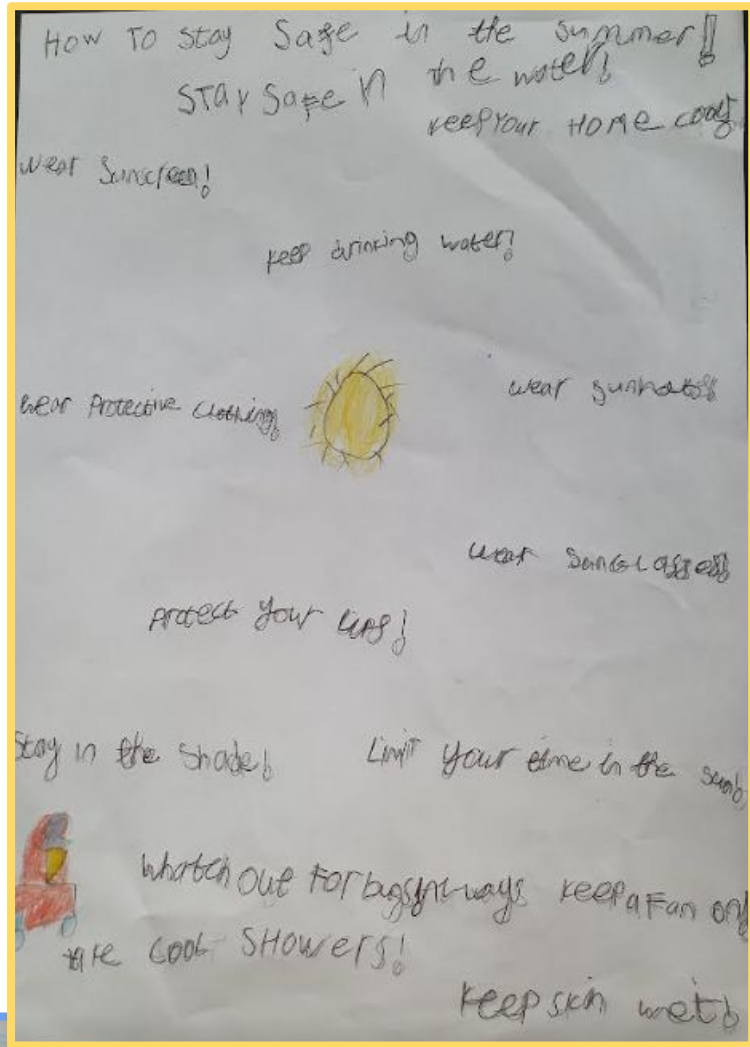 How To Stay Safe in the summer!!
STAY Safe in the water!
KeepYour HOMe cool!
Wear Sunscreen!
keep drinking water!
wear Protective Clothing!
wear sunhats!!
wear SunGLasses!!
Protect your Lips!
Stay in the shade!
Limit your time in the sun!
Whatch out For bugs!ALways keep a Fan on!
take cool SHOwers!
Keep skin wet!